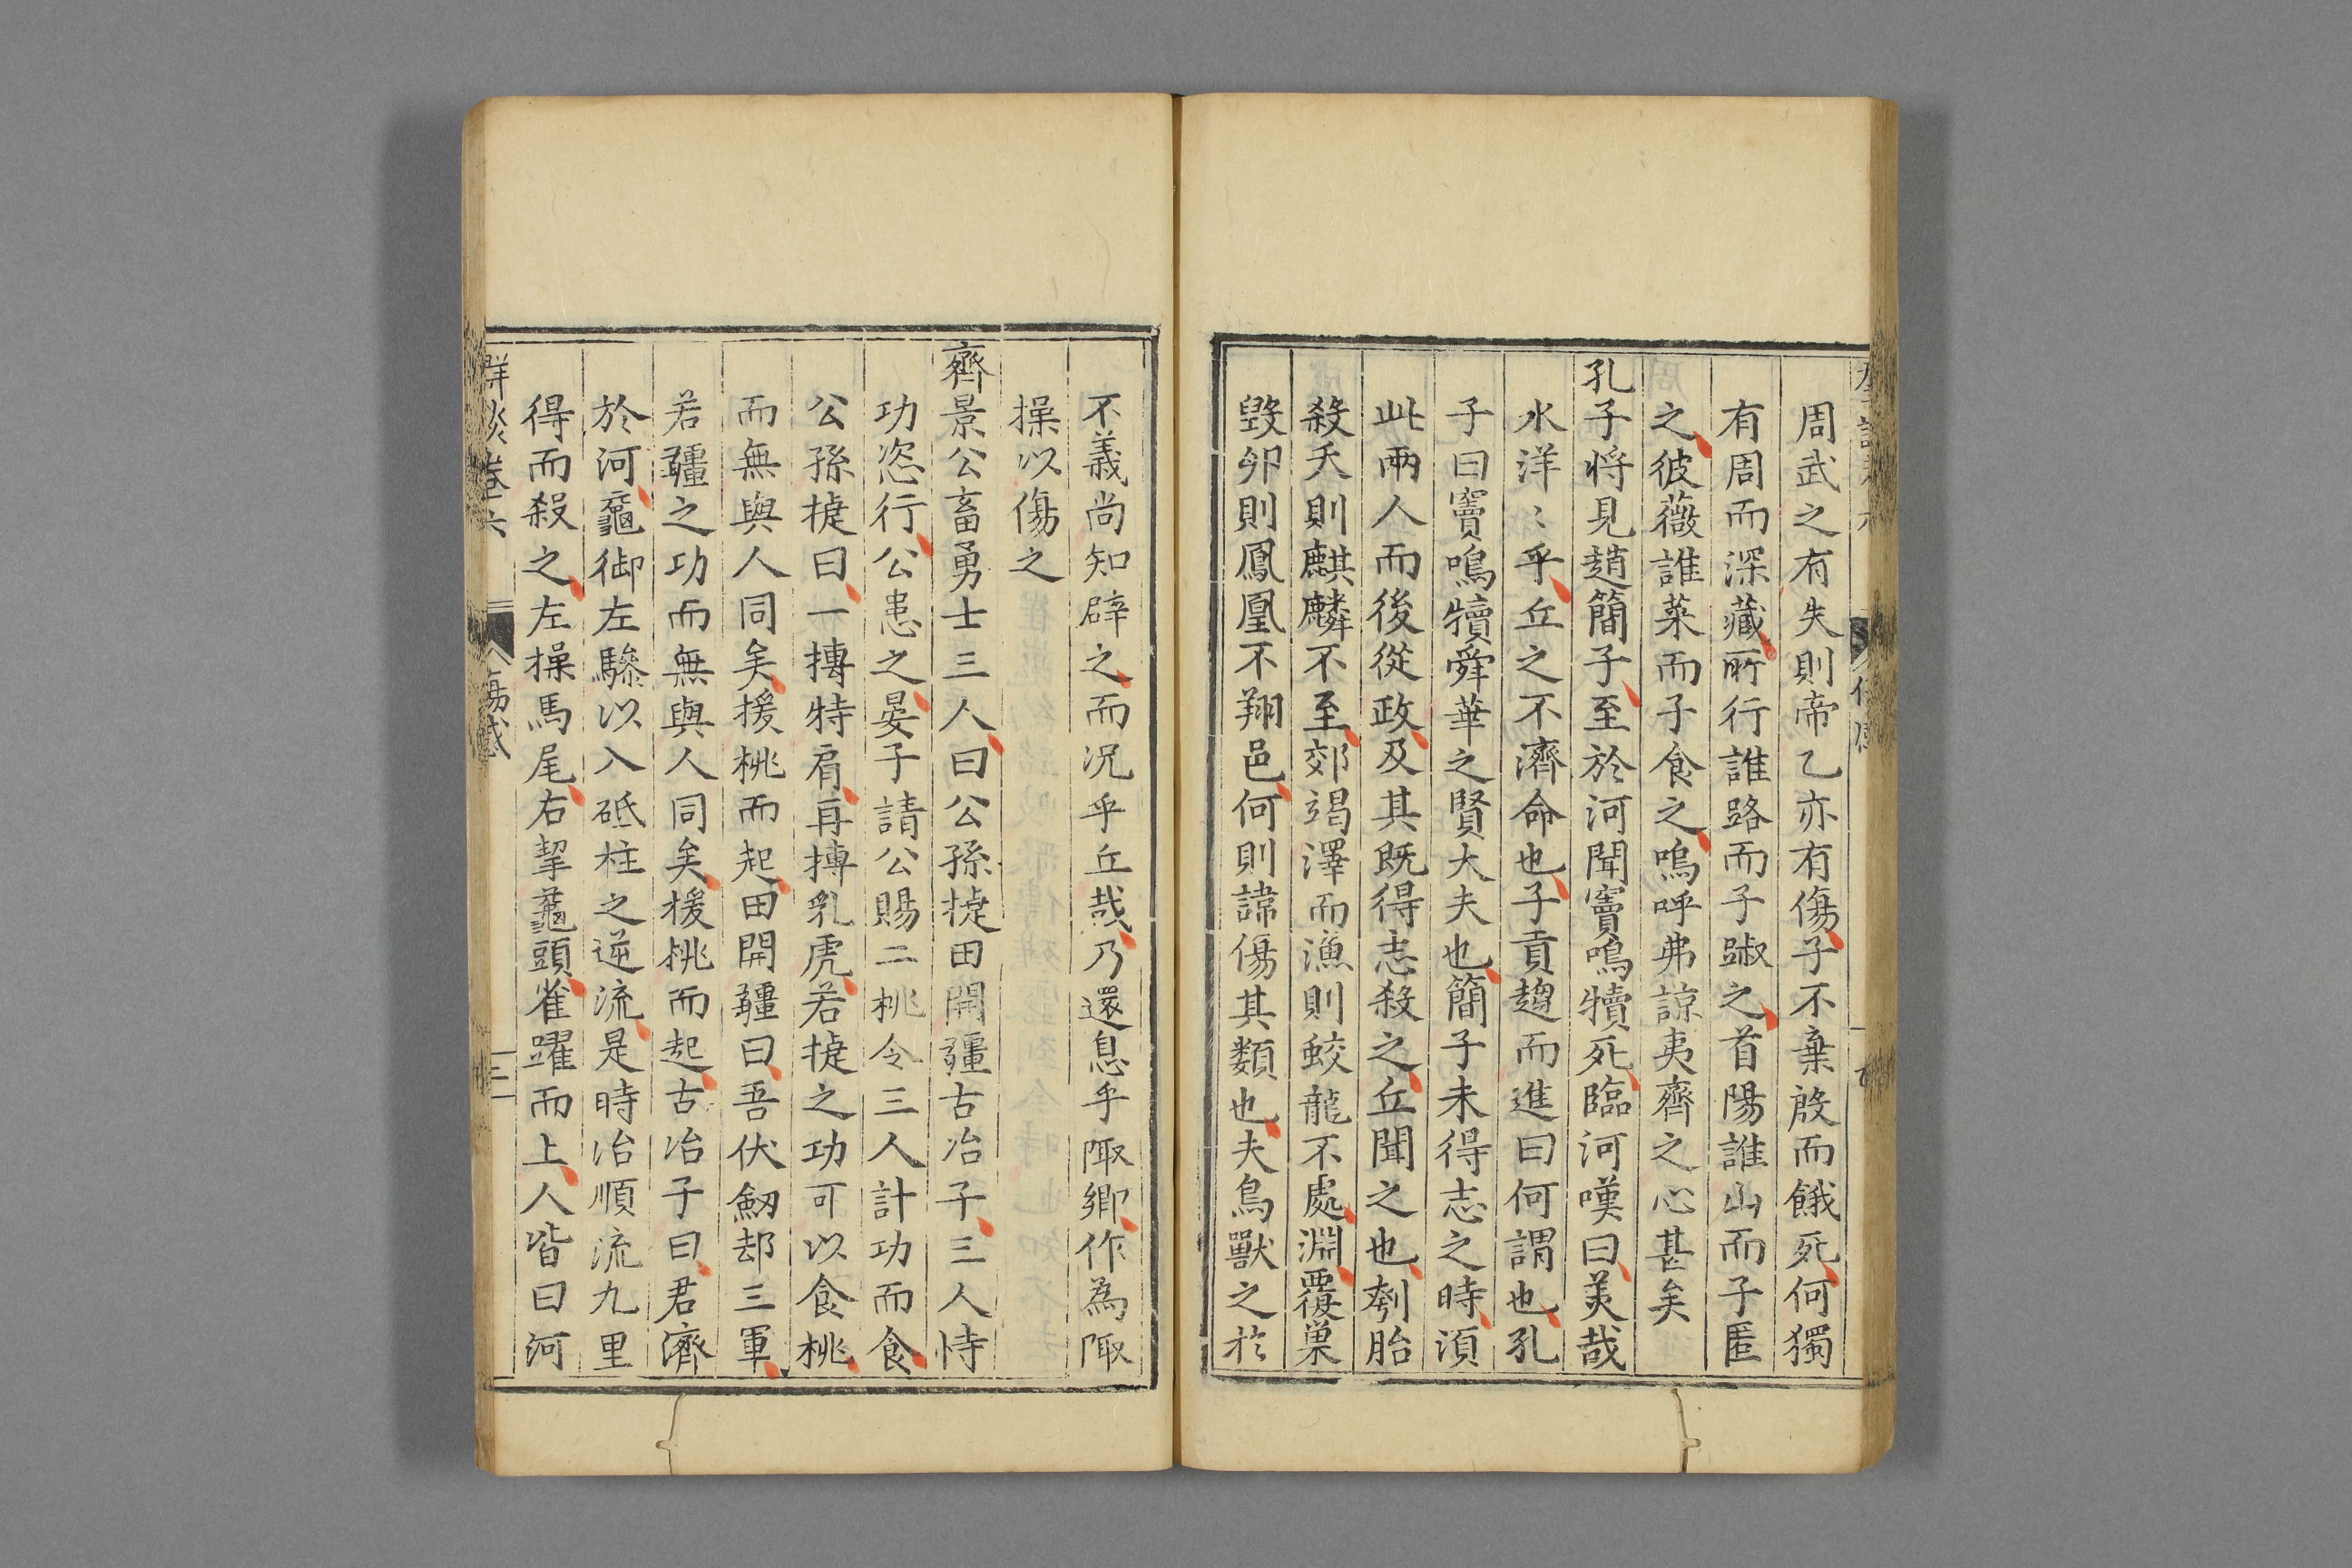 周武之有失則帝乙亦有傷子不棄殷而餓死何獨
有周而深藏所行誰路而子踧之首陽誰山而子匿
之彼薇誰菜而子食之嗚呼弗諒夷齊之心甚矣
孔子將見趙簡子至於河聞竇鳴犢死臨河嘆曰美哉
水洋〻乎丘之不濟命也子貢趨而進曰何謂也孔
子曰竇鳴犢舜華之賢大夫也簡子未得志之時須
此兩人而後從政及其既得志殺之丘聞之也刳胎
殺夭則麒麟不至郊竭澤而漁則蛟龍不處淵覆巢
毀卵則鳳凰不翔邑何則諱傷其類也夫鳥獸之於
不義尚知辟之而况乎丘哉乃還息乎陬鄉作為陬
操以傷之
齊景公畜勇士三人曰公孫捷田開疆古冶子三人恃
功恣行公患之晏子請公賜二桃令三人計功而食
公孫捷曰一摶特肩再摶乳虎若捷之功可以食桃
而無與人同矣援桃而起田開疆曰吾伏劒却三軍
若疆之功而無與人同矣援桃而起古冶子曰君濟
於河黿御左驂以入砥柱之逆流是時冶順流九里
得而殺之左操馬尾右挈黿頭雀躍而上人皆曰河
群談卷六
傷感